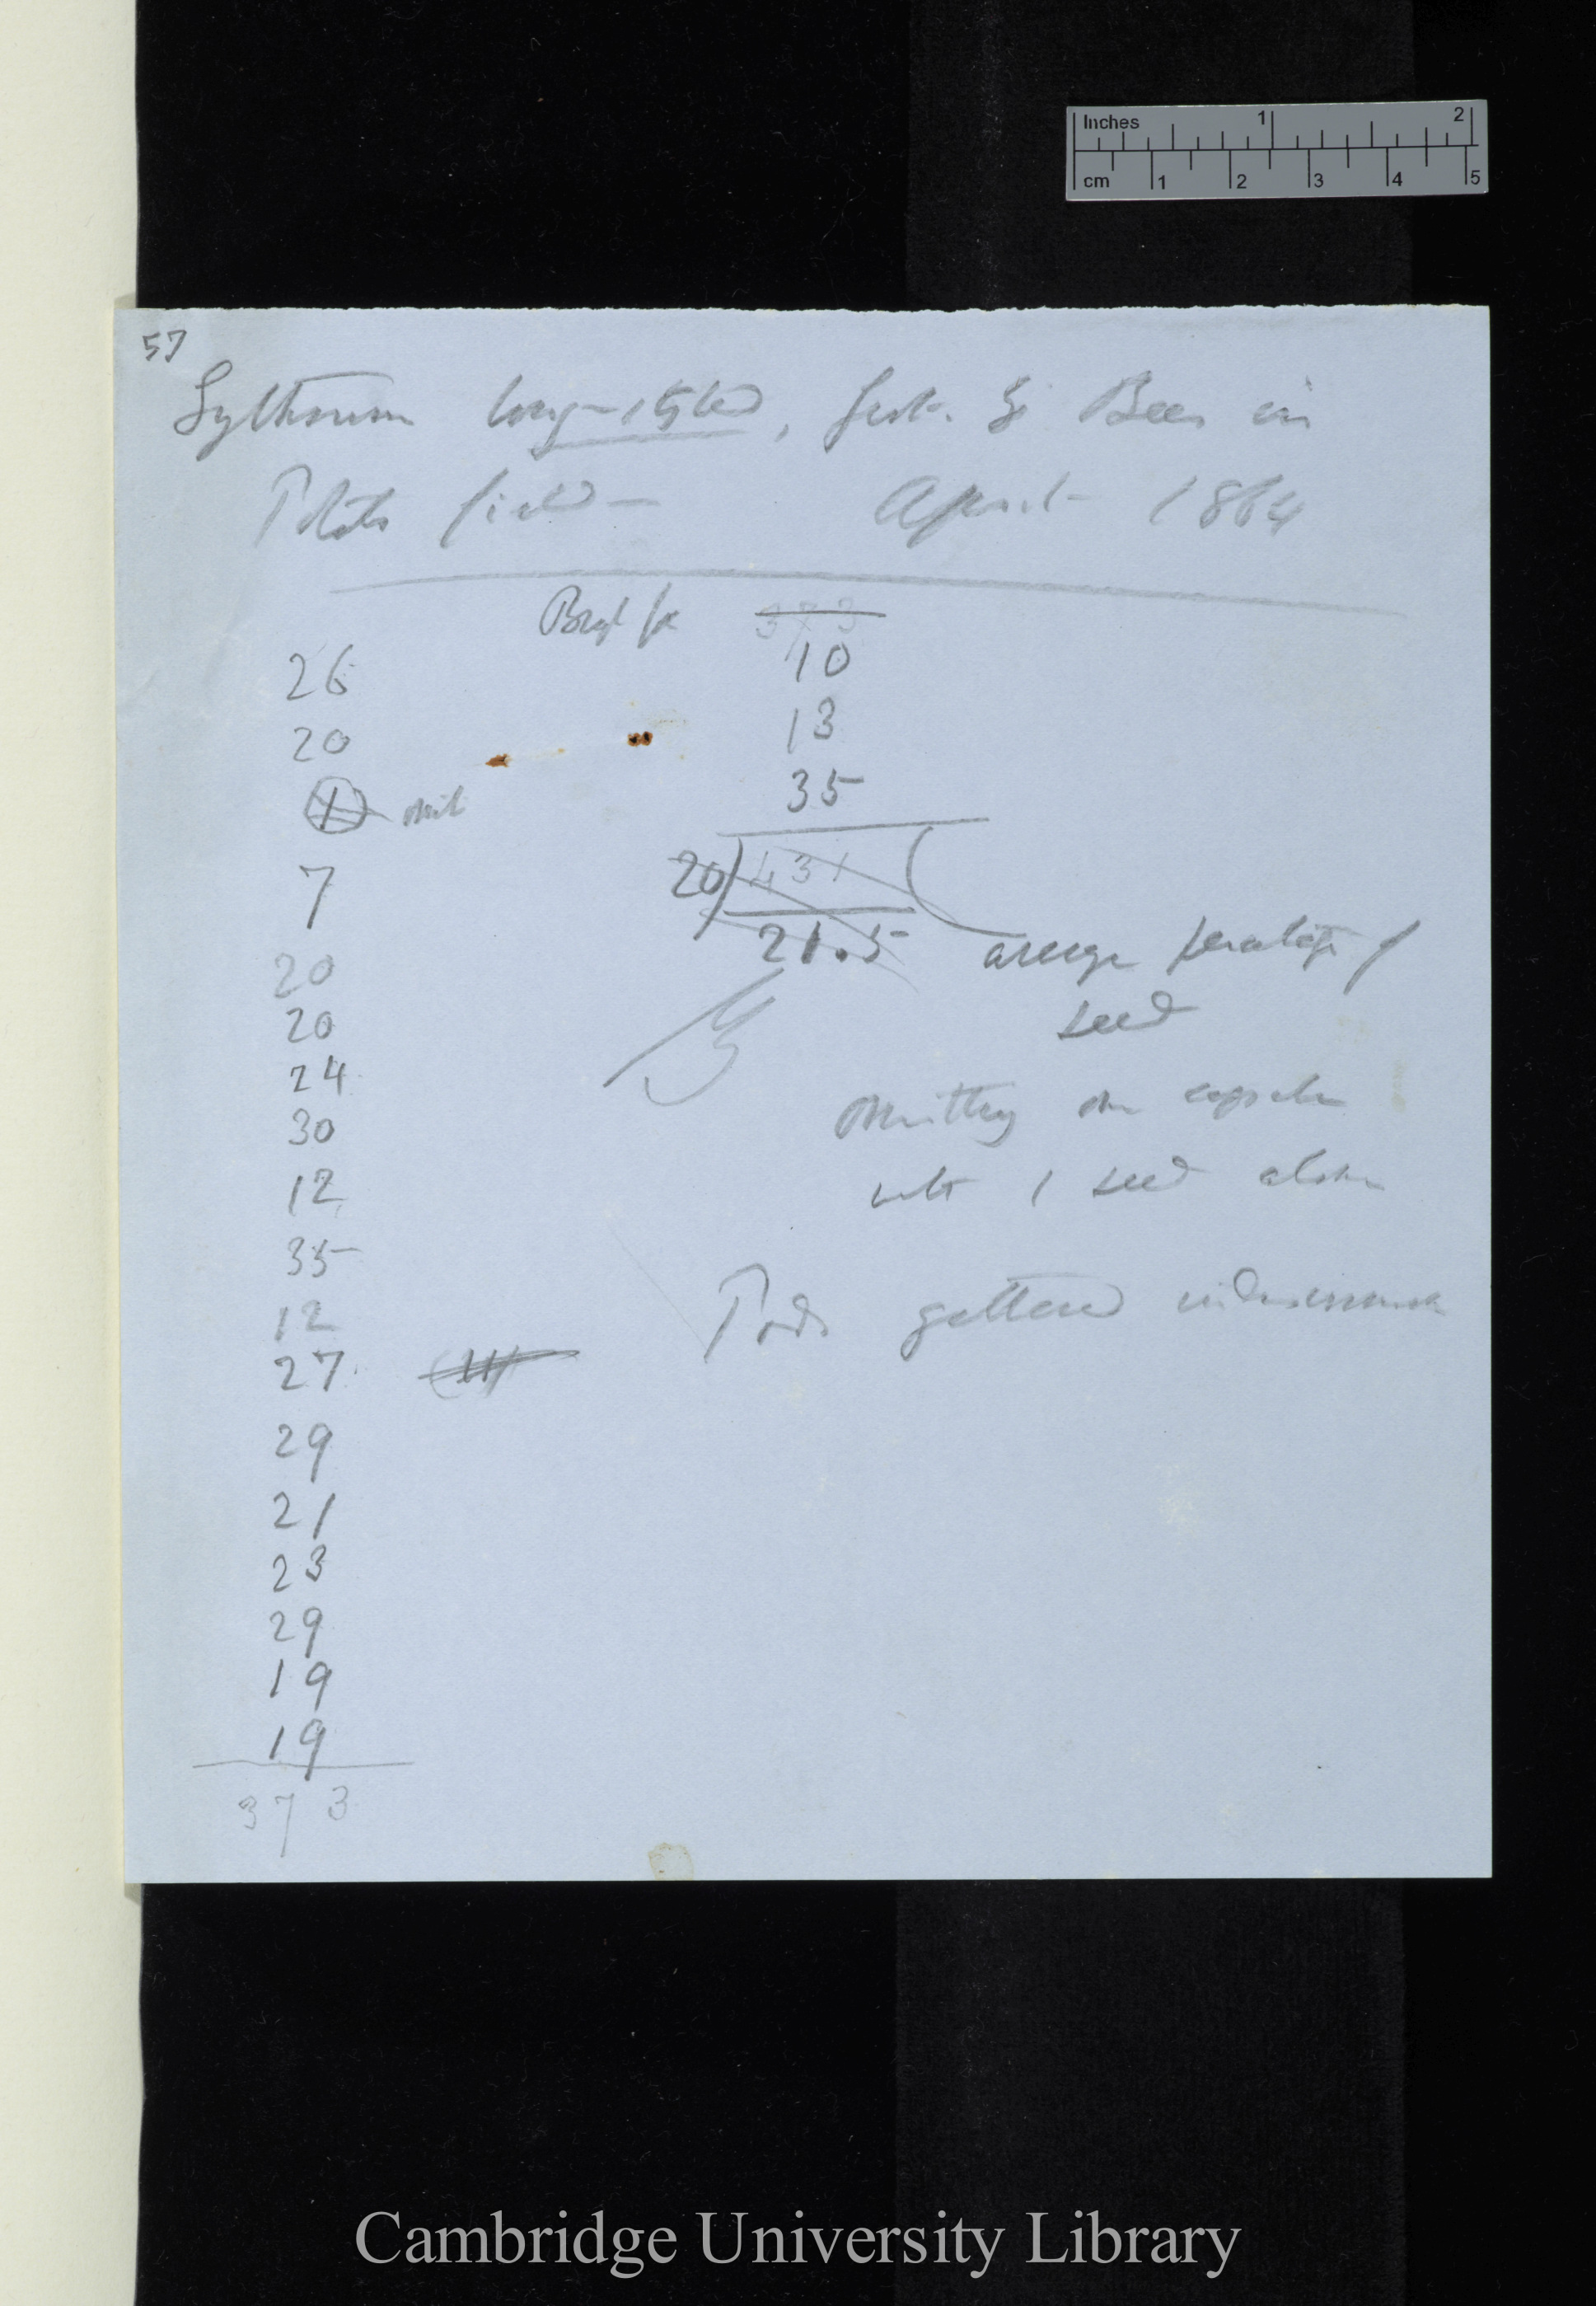 Inches 1 2
cm 1 2 3 4 5
57
Lythrum long-styled, fert. by Bees in
Potato field — April 1864
26
20
1 omit
7
20
20
24
30
12
35
12
27
29
21
23
29
19
19
373
373
10
13
35
20) 431 (
21.5 average percentage of
seed
omitting one capsule
with 1 seed alone
Pods gathered
Cambridge University Library